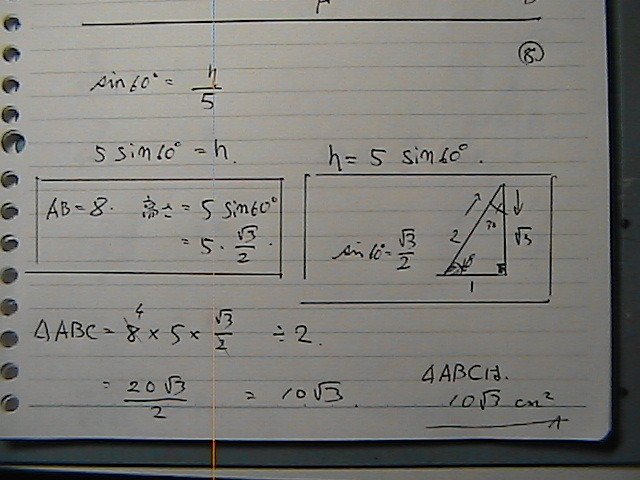 ⑤
sin60° = h/5
5 sin60° = h.
h = 5 sin60°.
AB = 8. 高さ = 5 sin60°
= 5 · √3/2.
sin60° = √3/2
2
30
√3
60
1
△ABC = 8 × 5 × √3/2 ÷ 2.
4
= 20√3/2 = 10√3.
△ABCは.
10√3 cm²